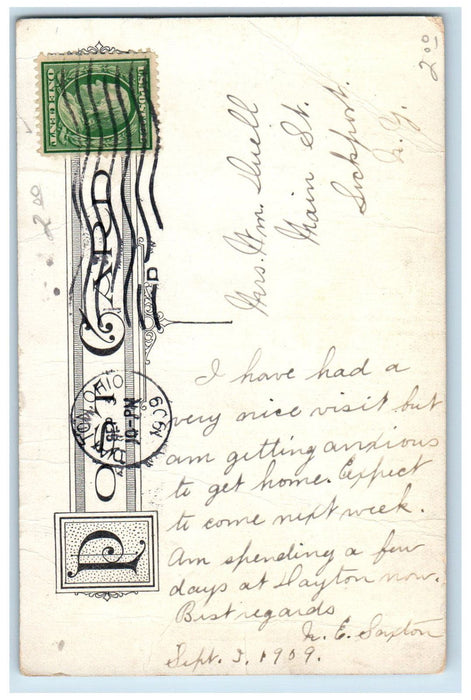 POST CARD
ONE CENT
2.00
2.00
DAYTON, OHIO
10-PM
1909
Mrs. Wm. Duell
Main St.
Lockport.
N.Y.
I have had a
very nice visit but
am getting anxious
to get home. Expect
to come next week.
Am spending a few
days at Dayton now.
Best regards
N. E. Saxton
Sept. 3, 1909.